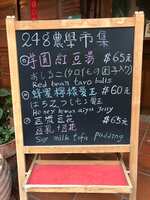 248農學市集
芋圓紅豆湯 $65元
おしるこ(タロイモの団子入り)
Red bean taro balls
蜂蜜檸檬愛玉 $60元
はちみつレモン愛玉
Honey lemon aiyu Jelly
豆漿豆花 $55元
豆乳豆花
Soy milk tofu pudding